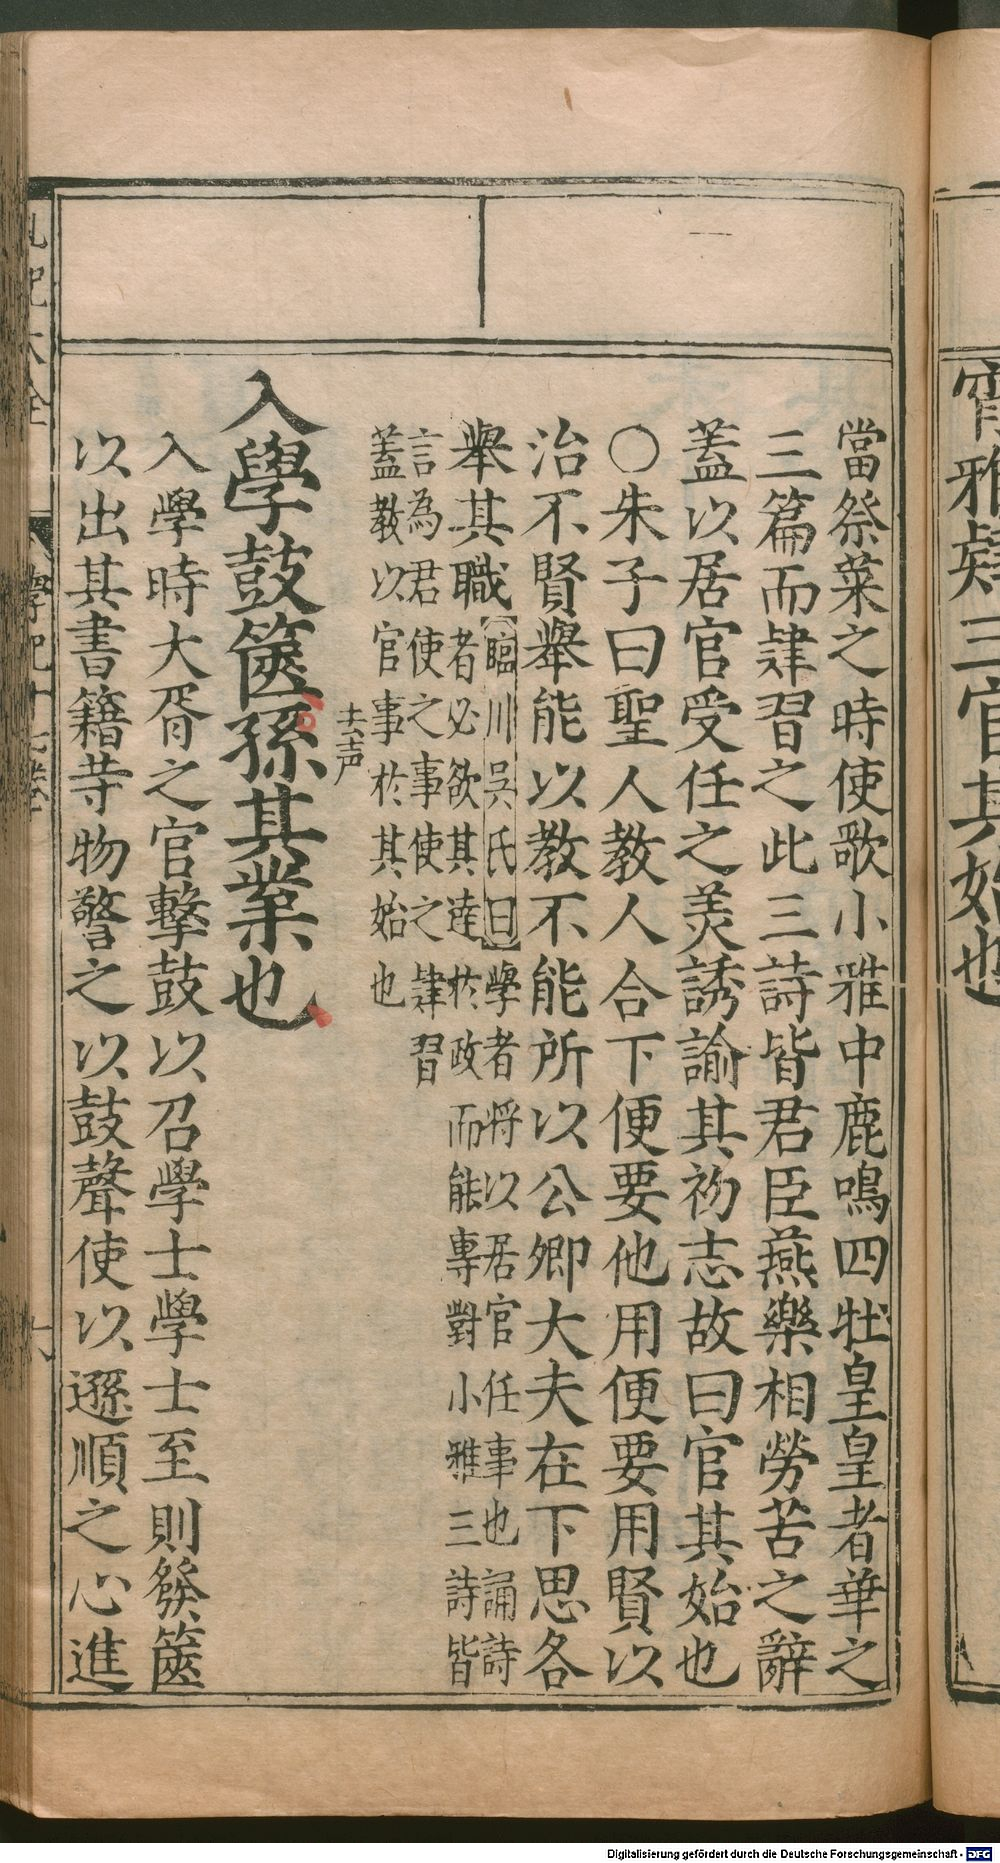 宵雅肄三官其始也
當祭菜之時使歌小雅中鹿鳴四牡皇皇者華之
三篇而肄習之此三詩皆君臣燕樂相勞苦之辭
蓋以居官受任之羙誘諭其初志故曰官其始也
○朱子曰聖人教人合下便要他用便要用賢以
治不賢舉能以教不能所以公卿大夫在下思各
舉其職
臨川吳氏曰學者將以居官任事也誦詩
者必欲其達於政而能專對小雅三詩皆
言為君使之事使之肄習
蓋教以官事於其始也
去声
入學鼓篋孫其業也
入學時大胥之官擊鼓以召學士學士至則發篋
以出其書籍䓁物警之以鼓聲使以遜順之心進
Digitalisierung gefördert durch die Deutsche Forschungsgemeinschaft - DFG